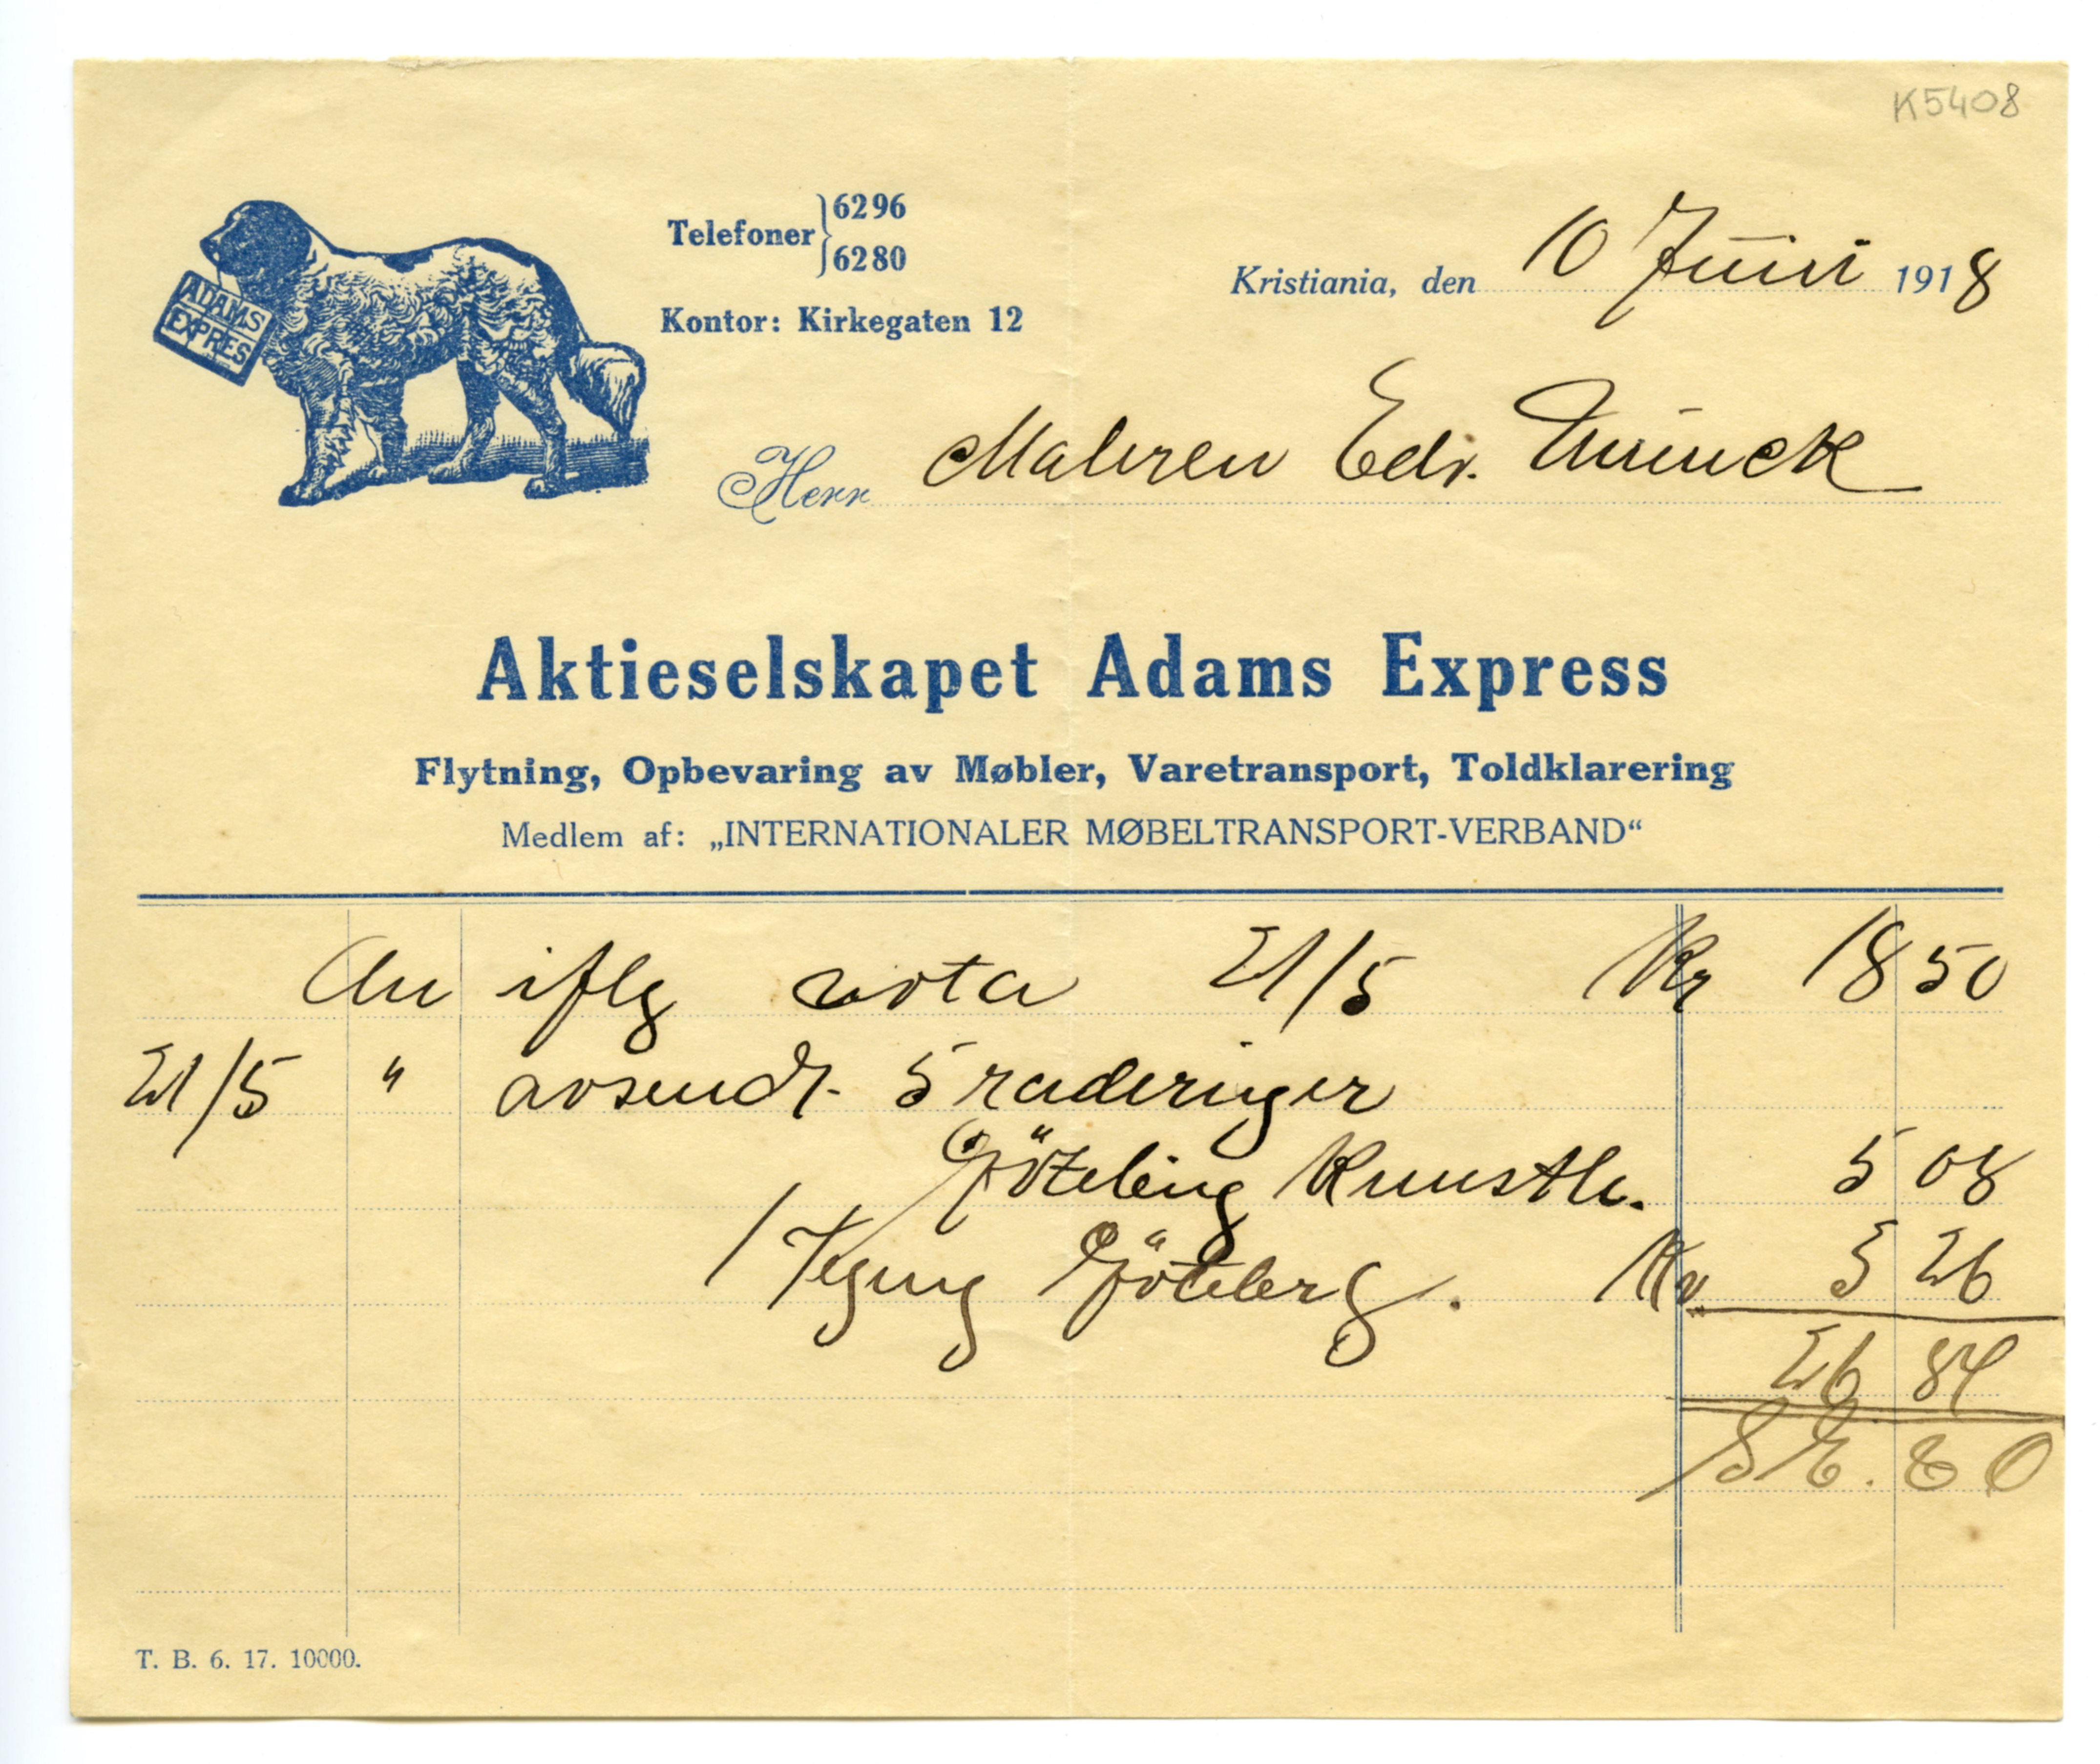 K5408
ADAMS
EXPRES
Telefoner 6296
6280
Kontor: Kirkegaten 12
Kristiania, den 10 Juni 1918
Herr Maleren Edv. Munck
Aktieselskapet Adams Express
Flytning, Opbevaring av Møbler, Varetransport, Toldklarering
Medlem af: „INTERNATIONALER MØBELTRANSPORT-VERBAND“
An iflg nota 21/5 Kr 18 50
21/5 " avsendt 5 raderinger
Göteborg Kunsth. 5 08
1 Göteberg. Kr. 3 26
26 84
T. B. 6. 17. 10000.